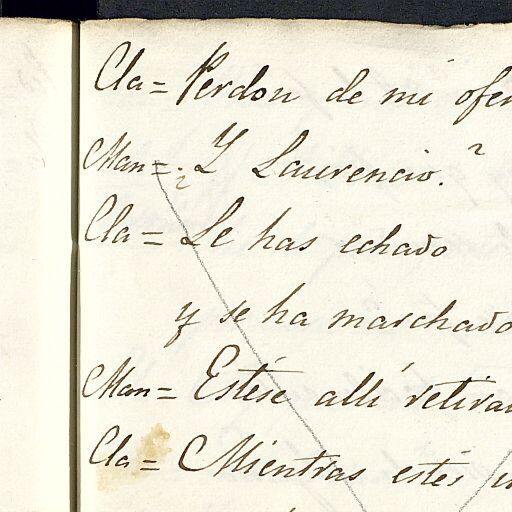 Cla = Perdon de mi ofen
Man = ¿Y Laurencio?
Cla = Le has echado
y se ha marchado
Man = Estése allí retira
Cla = Mientras estés